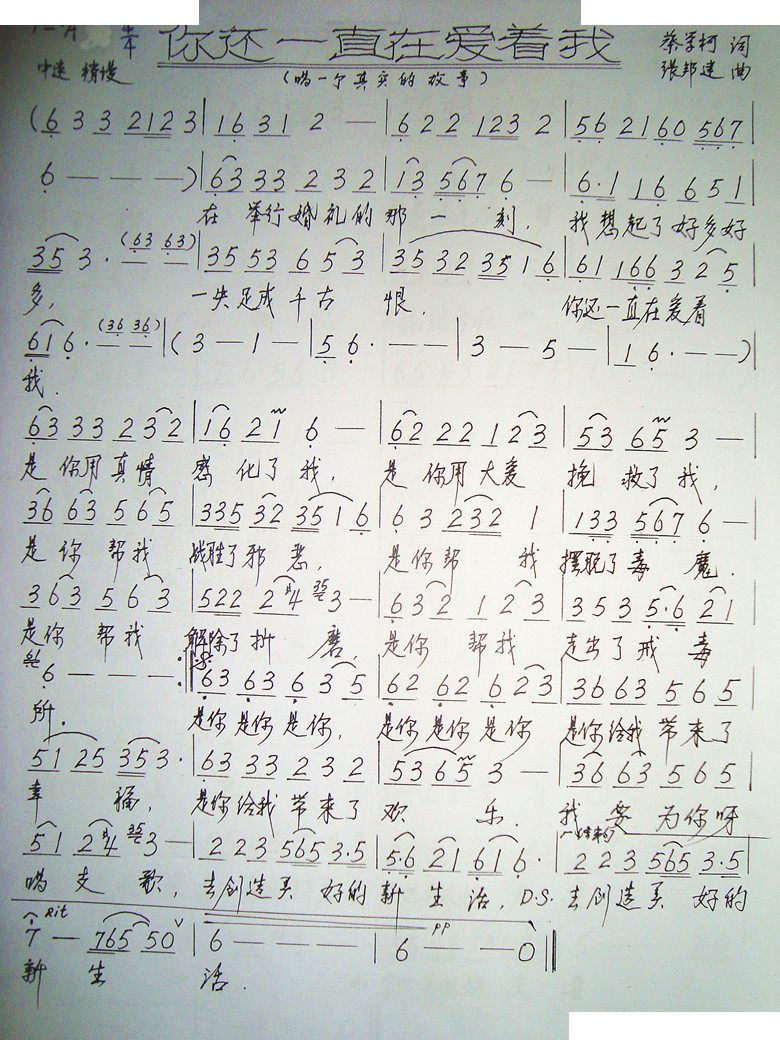 你还一直在爱着我
蔡学柯 词
中速 稍慢
(唱一个真实的故事)
张邦建 曲
(6 3 3 3 2 1 2 3 | 1 6 3 1 2 — | 6 2 2 1 2 3 2 | 5 6 2 1 6 0 5 6 7 |
6 — — — ) | 6 3 3 3 2 3 2 | 1 3 5 6 7 6 — | 6 · 1 1 6 6 5 1 |
在 举行婚礼的那一刻, 我想起了好多好
3 5 3 · (6 3 6 3) | 3 5 5 3 6 5 3 | 3 5 3 2 3 5 1 6 | 6 1 1 6 6 3 2 5 |
多, 一失足成千古 恨. 你还一直在爱着
6 1 6 · (3 6 3 6) | (3 — 1 — | 5 6 · — | 3 — 5 — | 1 6 · — — )
我.
6 3 3 3 2 3 2 | 1 6 2 1 6 — | 6 2 2 2 1 2 3 | 5 3 6 5 3 —
是 你用真情 感 化了 我, 是 你用大爱 挽 救了我,
3 6 6 3 5 6 5 | 3 3 5 3 2 3 5 1 6 | 6 3 2 3 2 1 | 1 3 3 5 6 7 6 —
是你 帮我 战胜了邪 恶, 是你帮 我 摆脱了毒 魔.
3 6 3 5 6 3 | 5 2 2 2 4 3 — | 6 3 2 1 2 3 | 3 5 3 5 · 6 2 1
是你 帮我 解除了折 磨, 是你 帮我 走出了戒 毒
6 — — — :‖ 6 3 6 3 6 3 5 | 6 2 6 2 6 2 3 | 3 6 6 3 5 6 5
所. 是你是你是你, 是你是你是你 是你给我 带来了
5 1 2 5 3 5 3 · | 6 3 3 3 2 3 2 | 5 3 6 5 3 — | 3 6 6 3 5 6 5
幸 福, 是你给我 带来了 欢 乐. 我 要 为你呀
5 1 2 4 3 — | 2 2 3 5 6 5 3 · 5 | 5 · 6 2 1 6 1 6 · | 2 2 3 5 6 5 3 · 5
唱支 歌, 去创造美 好的 新 生 活, D.S. 去创造美 好的
Rit
7 — 7 6 5 5 0 | 6 — — — | 6 — — 0 ‖
pp
新 生 活.